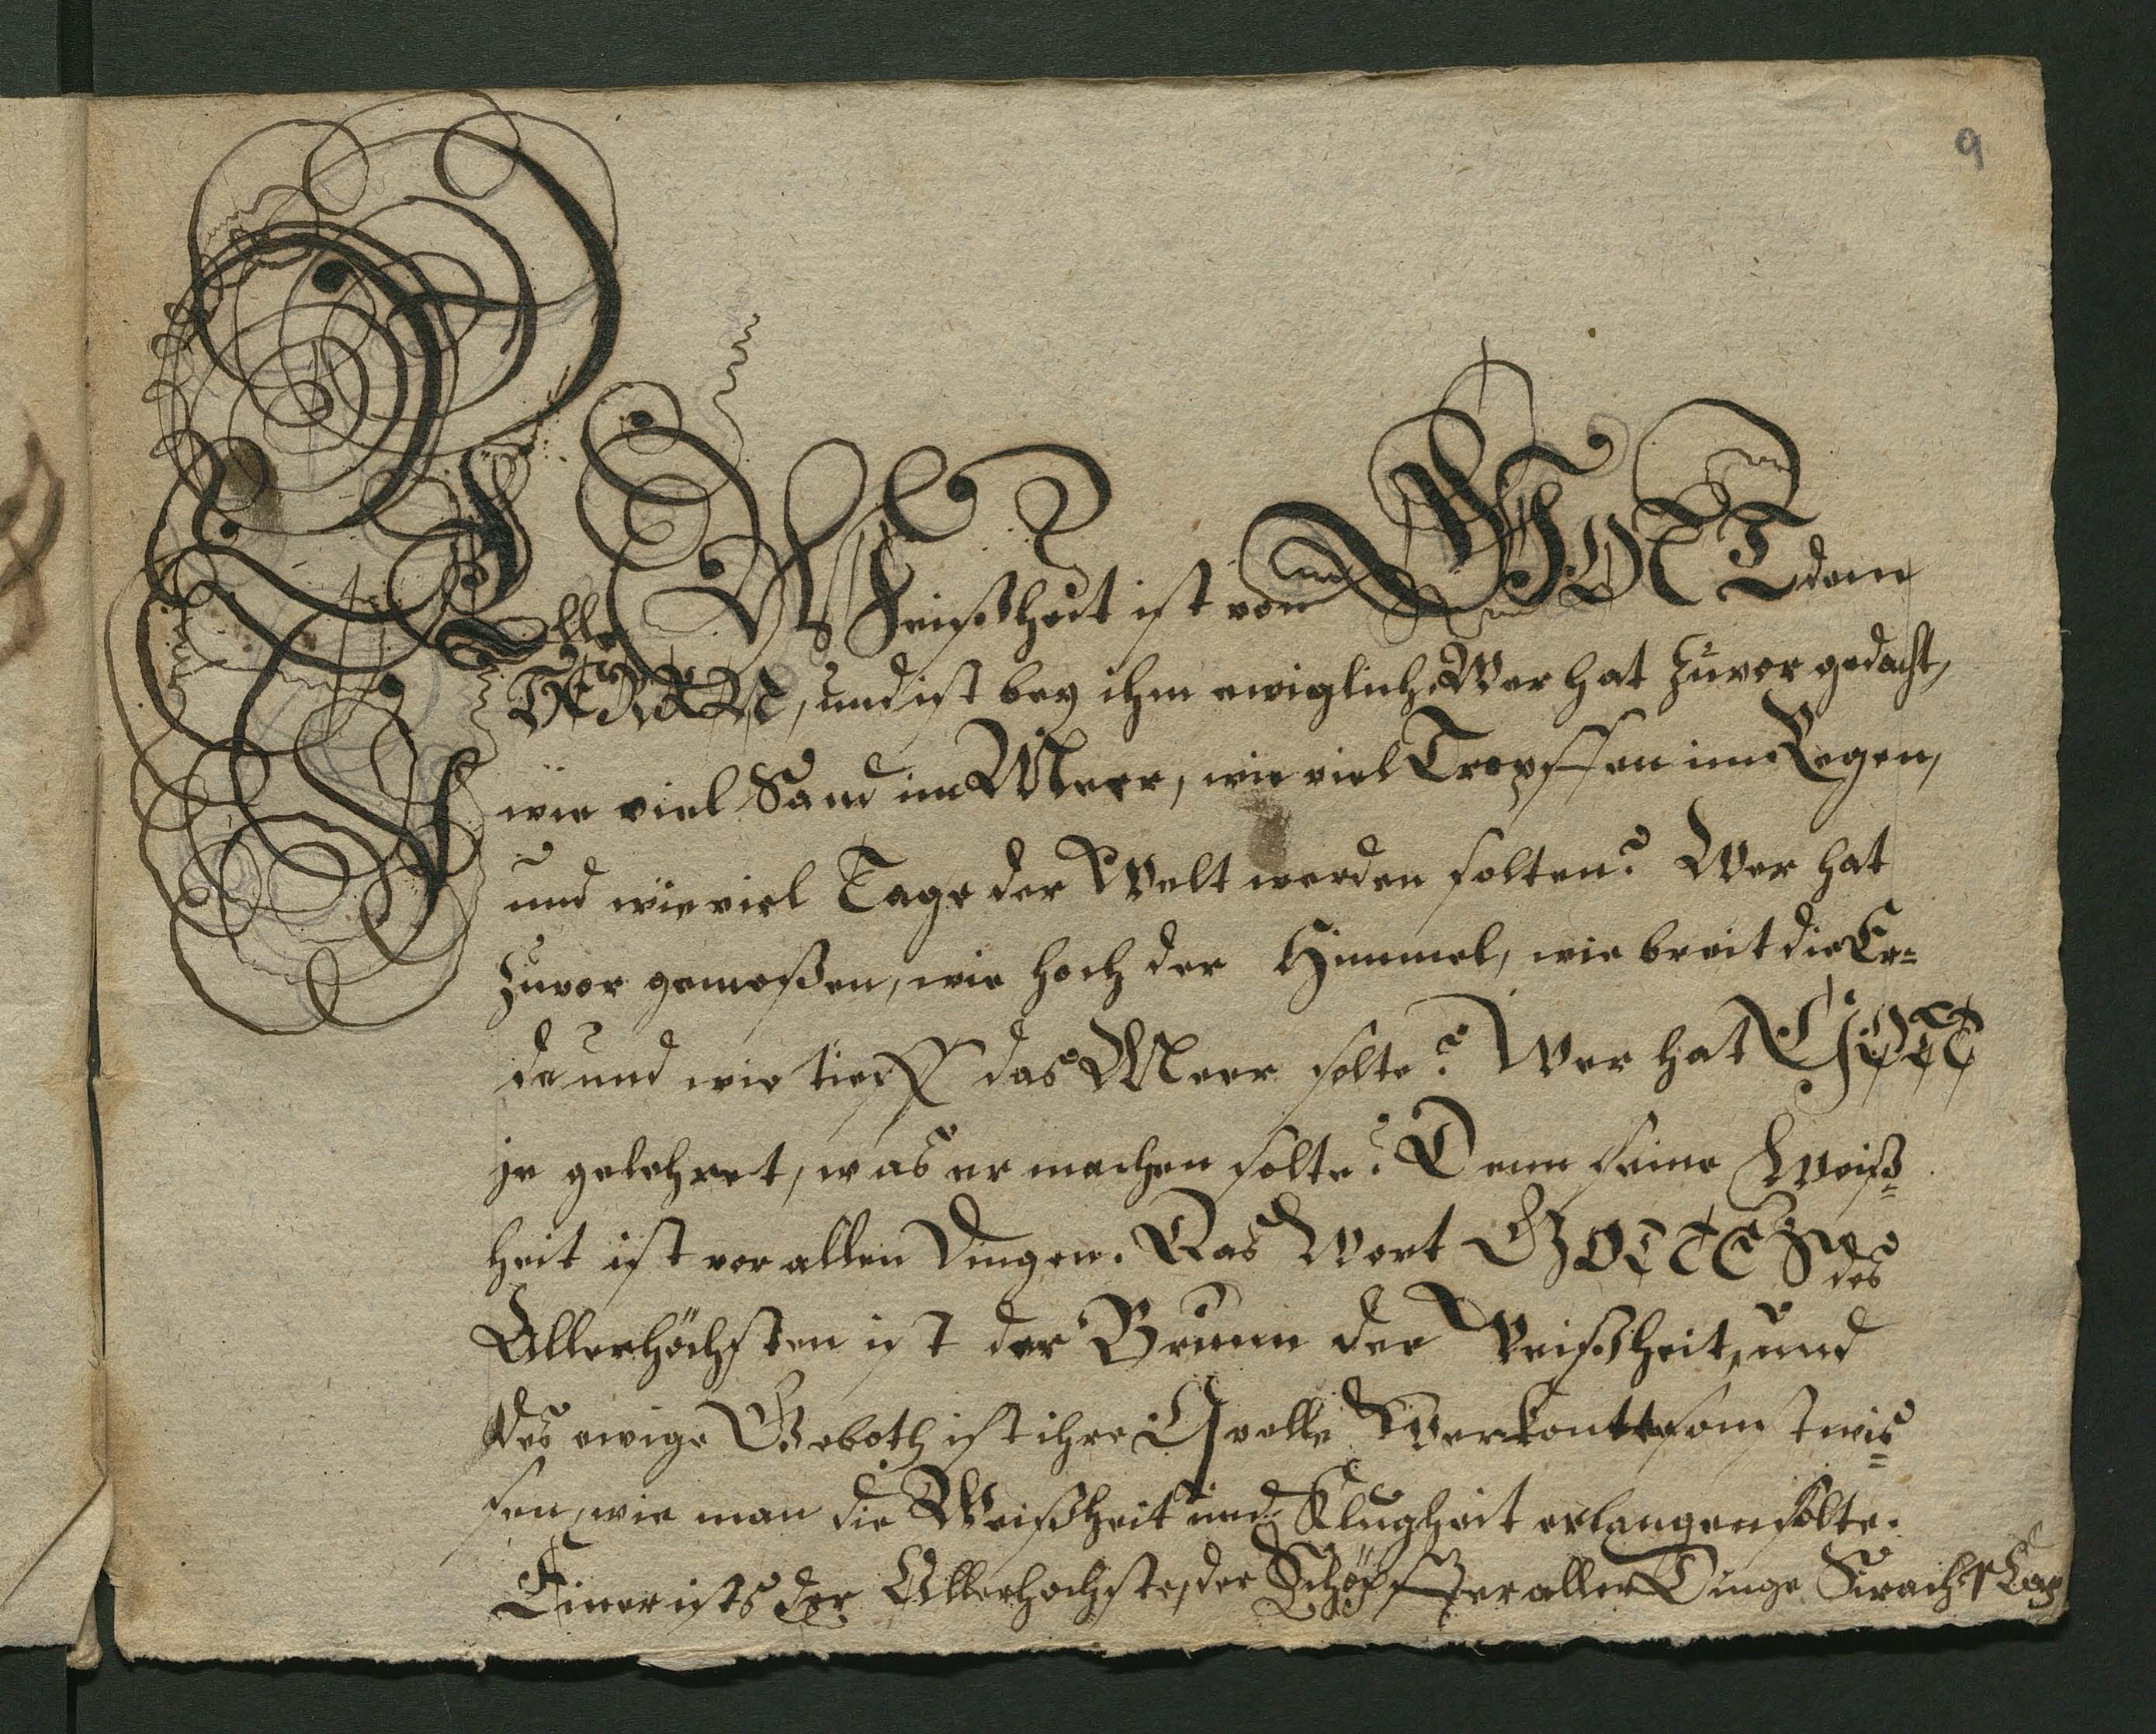 9
Alle Weißheit ist von GOTT dem
HERREN, und ist bey ihm ewiglich. Wer hat zuvor gedacht,
wie viel Sand im Meer, wie viel Tropffen im Regen,
und wie viel Tage der Welt werden solten? Wer hat
zuvor gemeßen, wie hoch der Himmel, wie breit die Er=
de und wie tieff das Meer solte? Wer hat GOTT
je gelehret, was er machen solte? Denn seine Weiß=
heit ist vor allen Dingen. Das Wort GOTTES des
Allerhöchsten ist der Brunn der Weißheit, und
das ewige Geboth ist ihre Qvelle Wer konte sonst wis=
sen, wie man die Weißheit und Klugheit erlangen solte.
Einer ists der Allerhochste, der Schöpffer aller Dinge Sirach. 1 Cap